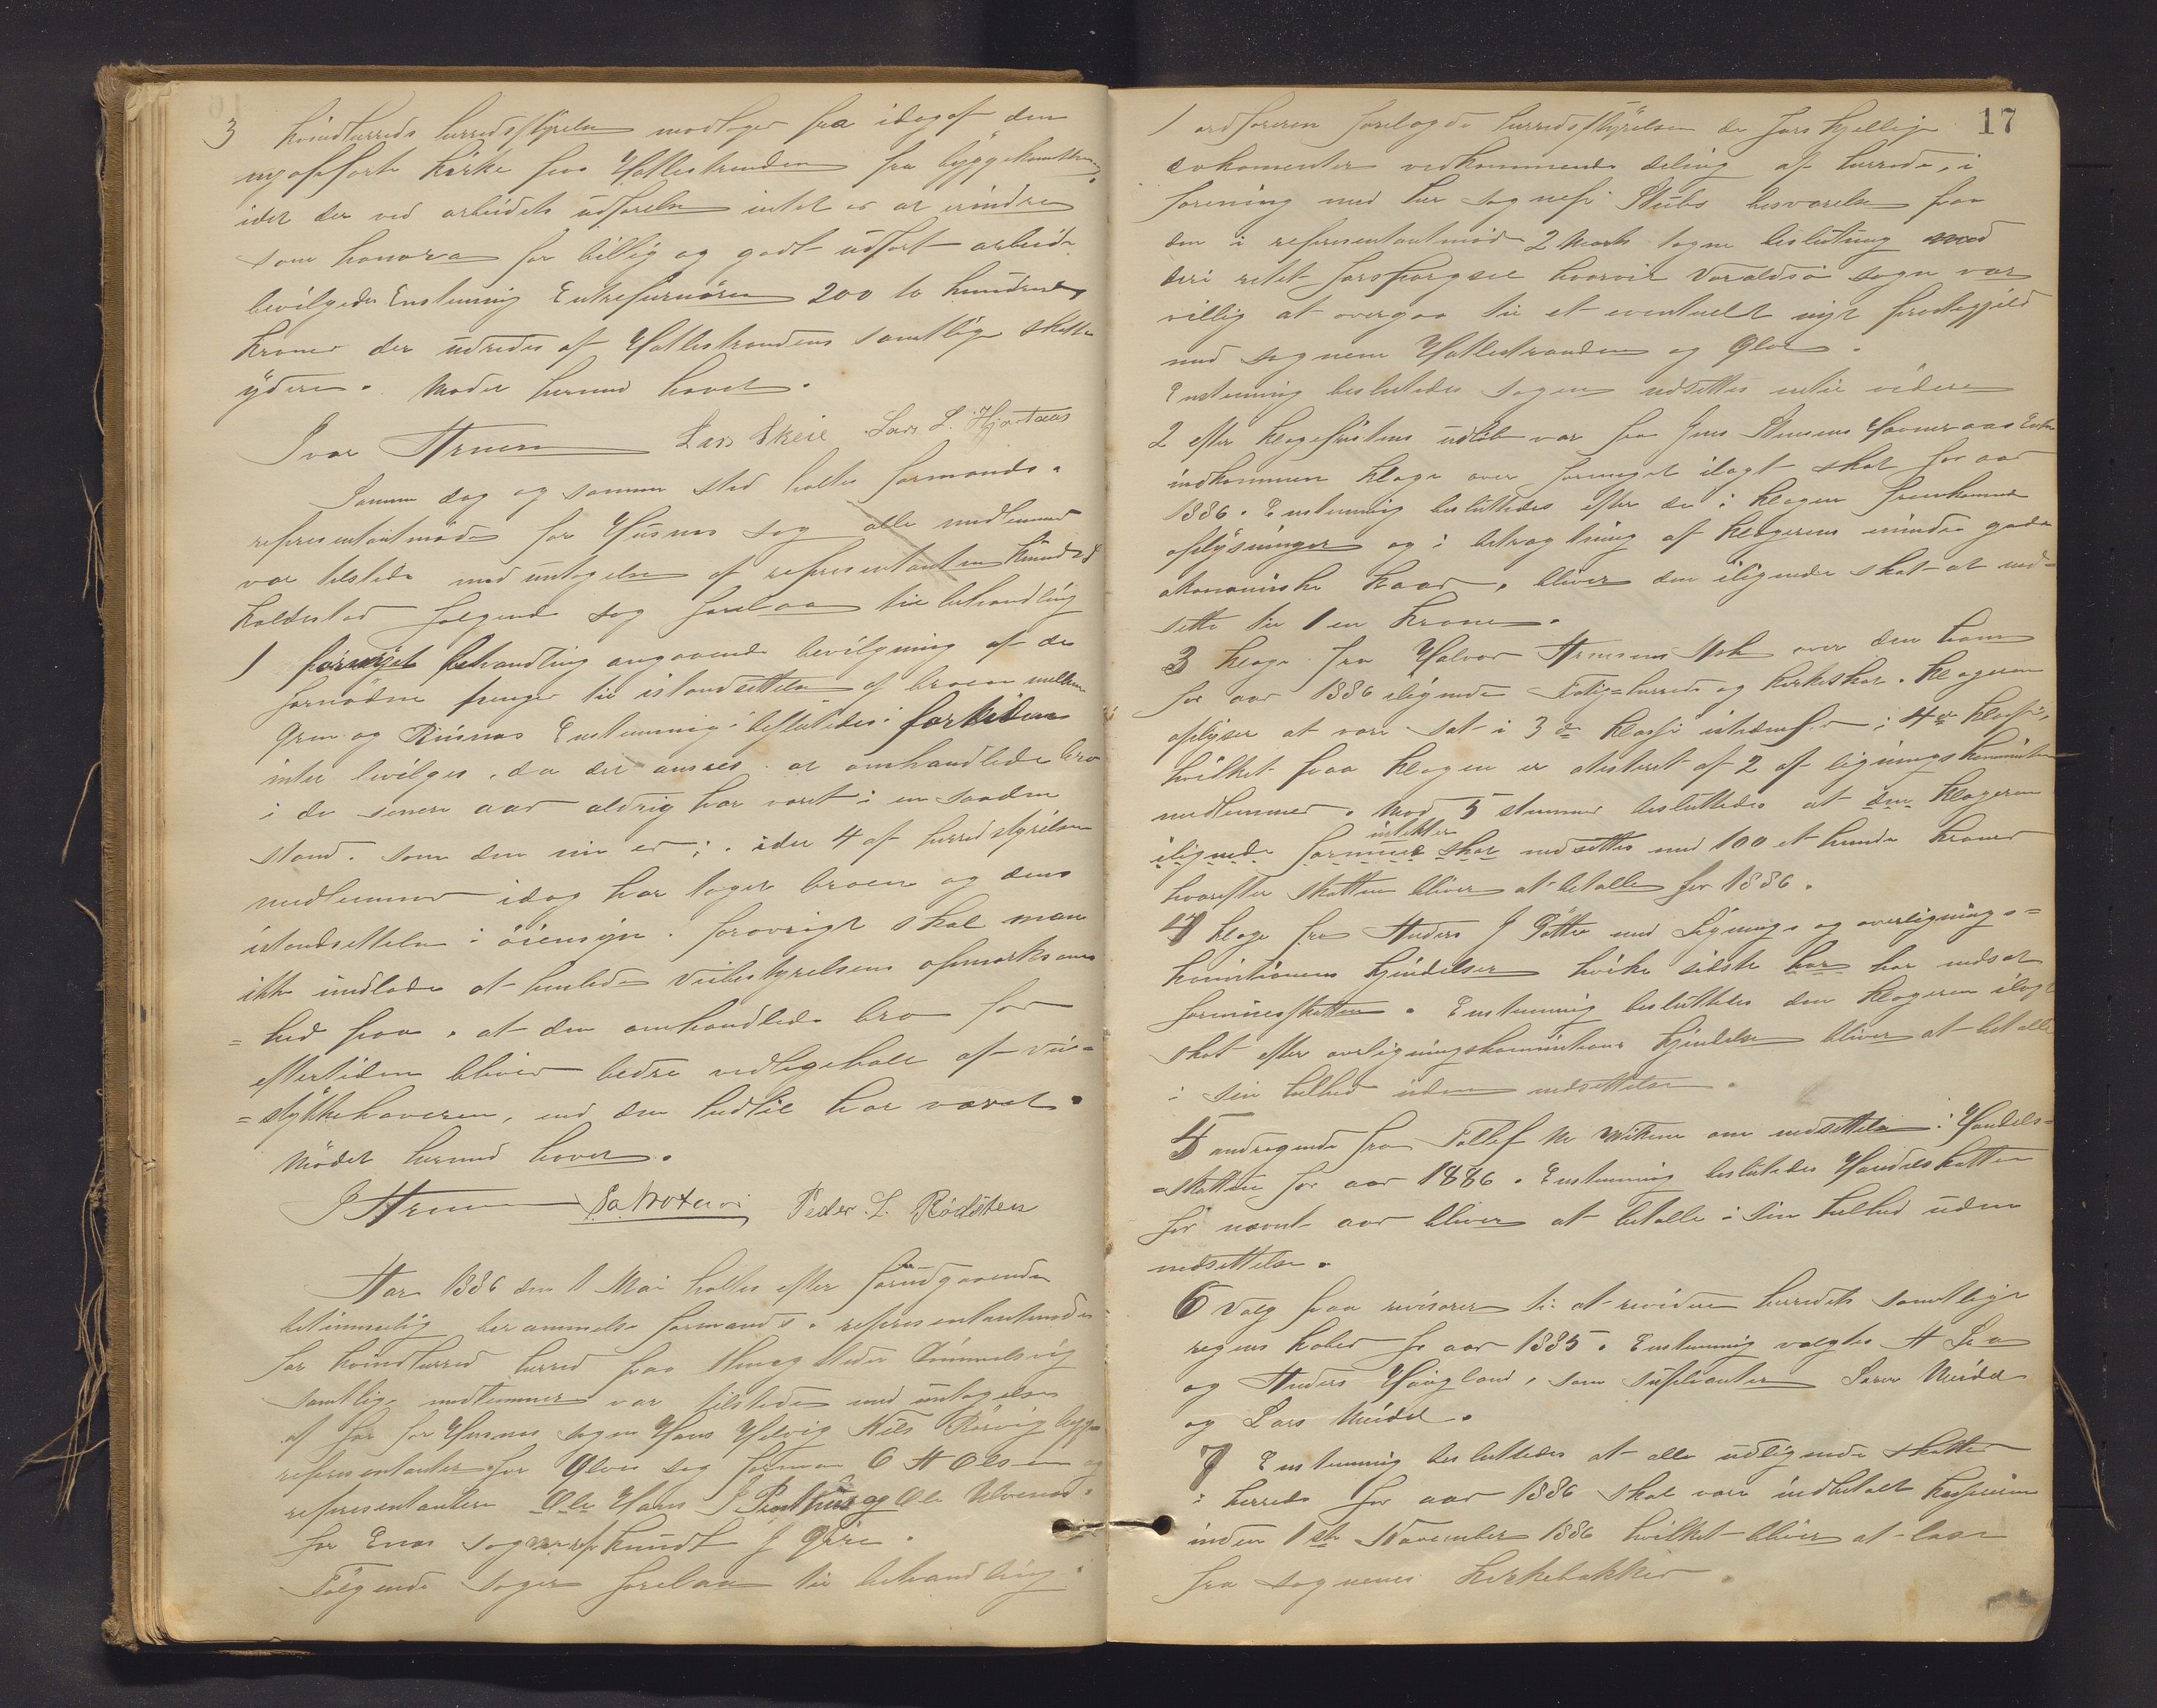 3 Kvindherreds herredsstyrelse modtager fra idag af den
nyopførte Kirke paa Hatlestranden fra byggekomiteen
idet der ved arbeidets udførelse intet er at erindre
som honorar for billig og godt udført arbeide
bevilgedes Enstemmig Entrepenøren 200 to hundrede
Kroner der udredes af Hatlestrandens samtlige skatte
ydere. Mødet hermed hævet.
Ivar Arnesen Lars Skeie Lars L. Hjortaas
Samme dag og samme sted holtes formands.
representantmøde for Husnes sog alle medlemmer
var tilstede med untagelse af representanten Knud
Koldestad følgende sag forelaa til behandling
1 fornyet behandling angaaende bevilgning af de
fornødne penger til istandsettelse af broen mellem
og Enstemmig besluttedes: for tiden
intet bevilges, da det ansees at omhandlede bro
i de senere aar aldrig har været i en saadan
stand. som den nu er; ider 4 af herredstyrelsens
medlemmer idag har taget broen og dens
istandsettelse i øiensyn. forøvrigt skal man
ikke undlade at henlede Veibestyrelsens opmærksom
=hed paa, at den omhandlede bro for
eftertiden bliver bedre vedligeholt af vei=
=stykkehaveren, end den hidtil har været.
Mødet hermed hævet.
I Arnesen Peder L. Rødsten
Aar 1886 den 1 Mai holtes efter forudgaaende
betimmelig berammelse formands. representantmøde
for Kvindherred herred paa Skinegstedet
samtlige medlemmer var tilstede med untagelse
af for for Husnes sogn Hans Helvig Nils
representanter for Ølve sog forman O A Olsen og
representantene Ole Hans J og Ole Ulvenes.
for Enes sogn rep Knudt J
Følgende sager forelaa til behandling:
17
1 ordføreren forelagde herredsstyrelsen de forskjellige
dokumenter vedkommende deling af herredet, i
forening med her sognepr Stubs besvarelse paa
den i representantmøde 2 Marts tagne beslutning med
deri rettet forspørgsel hvorvit Varaldsø sogn var
villig at overgaa til et eventuelt nyt prestegjeld
med sognene Hatlestranden og Ølve.
Enstemming besluttedes sagen udsettes intil videre
2 efter klagefristens udløb var fra Jens
indkommen klage over formeget ilagt skat for aar
1886. Enstemmig besluttedes efter de i klagen fremkomne
oplysninger og i betragtning af klagerens mindre gode
økonomiske kaar, bliver den ilignede skat at ned=
sette til 1 en Krone.
3 klage fra Halvor Arnesen over den ham
for aar 1886 ilignede Fatig=herreds og kirkeskat. Klageren
oplyser at være sat i 3 de klasse istædenfor i 4de klasse,
hvilket paa klagen er atesteret af 2 af ligningskommisions
medlemmer. Mod 5 stemmer besluttedes at den klageren
ilignede formue intekter skat nedsettes med 100 et hundre Kroner
hvorefter skatten bliver at betalle for 1886.
4 klage fra Anders J med Lignings og overlignings=
komitionens kjendelser hvike sidste har har nedsat
formueskatten. Enstemmig besluttedes den klageren ilagt
skat efter overligningskommitions kjendelse bliver at betalle
i sin helhed uden nedsettelse.
5 andragende fra Tollef M om nedsettelse i Handels=
=skatten for aar 1886. Enstemmig besluttedes Handelsskatten
for nævnt aar bliver at betalle i sin helhed uden
nedsettelse.
6 Valg paa revisorer til at revidere herredets samtlige
regnskaber for aar 1885. Enstemmig valgtes A
og Anders Haugland, som supleanter Søren Mehl
og Lars
7 Enstemmig besluttedes at alle udlignede skatter
i herredet for aar 1886 skal være indbetalt kassereren
inden 1ste November 1886 hvilket bliver at læse
fra sognenes Kirkebakker.